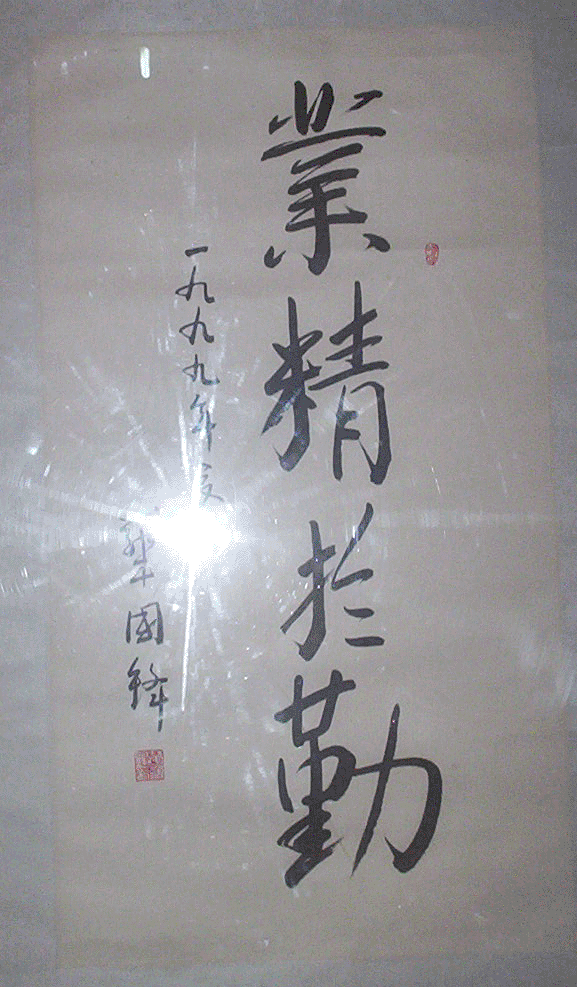 業精於勤
一九九九年夏
華國鋒